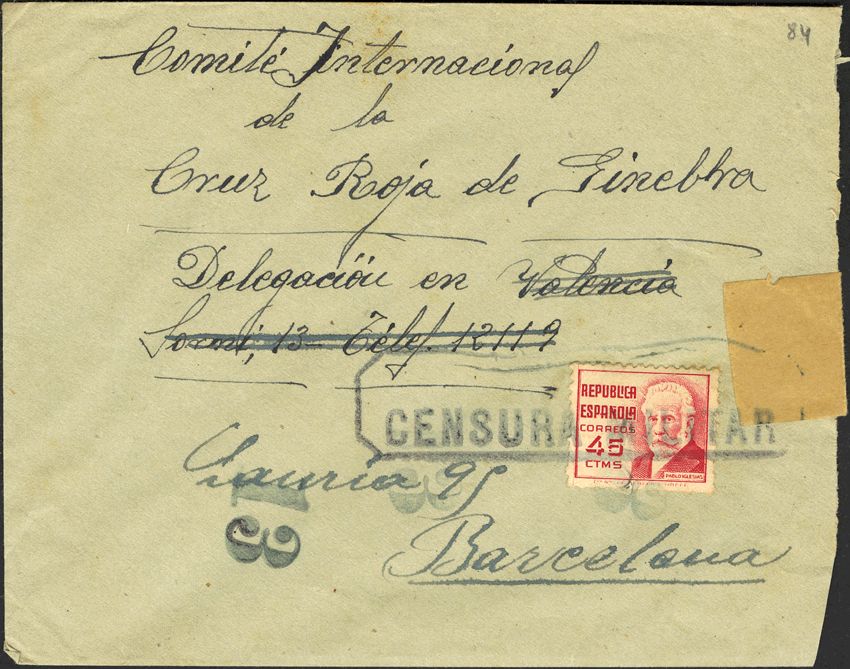 84
Comité Internacional
de la
Cruz Roja de Ginebra
Delegación en Valencia
13 Téléf. 12119
REPUBLICA
ESPAÑOLA
CORREOS
45
CTMS
PABLO IGLESIAS
CENSURA MILITAR
Lauria 95
13
Barcelona